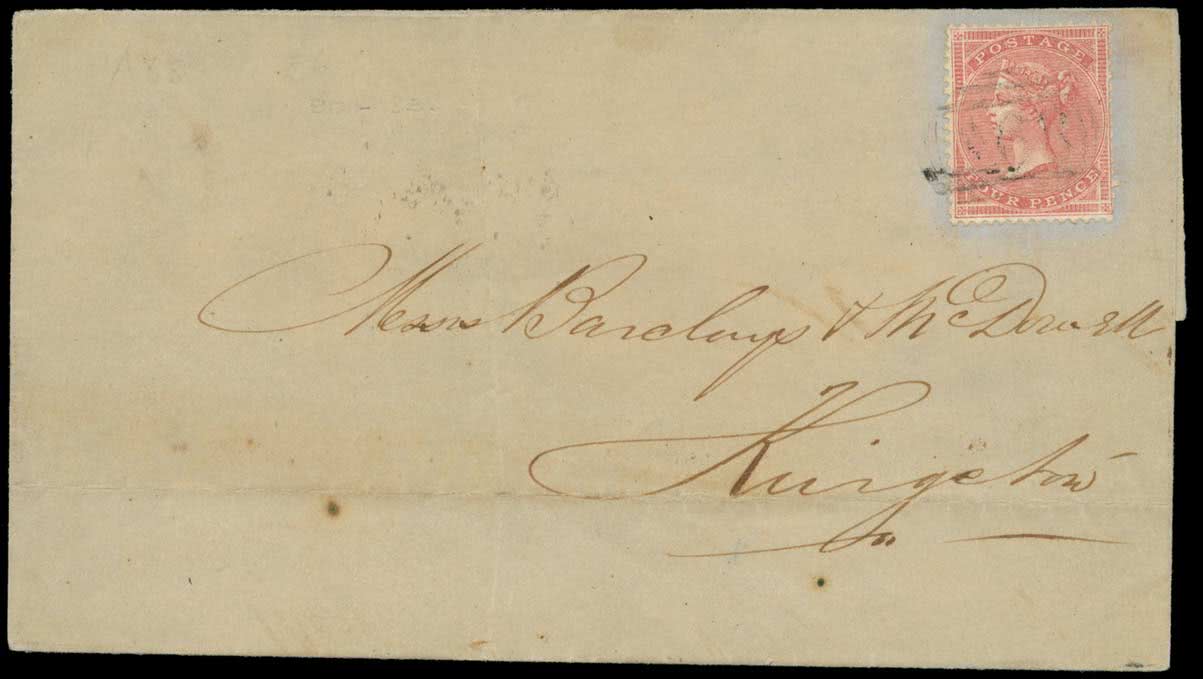 POSTAGE
FOUR PENCE
Messrs Barclays & McDowell
Kingston